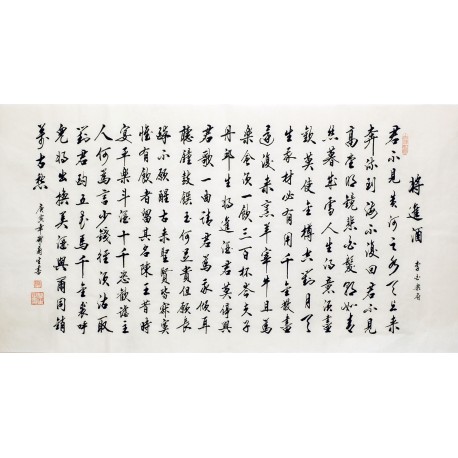 將進酒
君不見黃河之水天上來
奔流到海不復回君不見
高堂明鏡悲白髮朝如青
絲暮成雪人生得意須盡
歡莫使金樽空對月天
生我材必有用千金散盡
還復來烹羊宰牛且為
樂會須一飲三百杯岑夫子
丹邱生將進酒君莫停與
君歌一曲請君為我傾耳
聽鐘鼓饌玉何足貴但願長
醉不願醒古來聖賢皆寂寞
惟有飲者留其名陳王昔時
宴平樂斗酒十千恣歡謔主
人何為言少錢徑須沽取
對君酌五花馬千金裘呼
兒將出換美酒與爾同銷
萬古愁
庚寅年